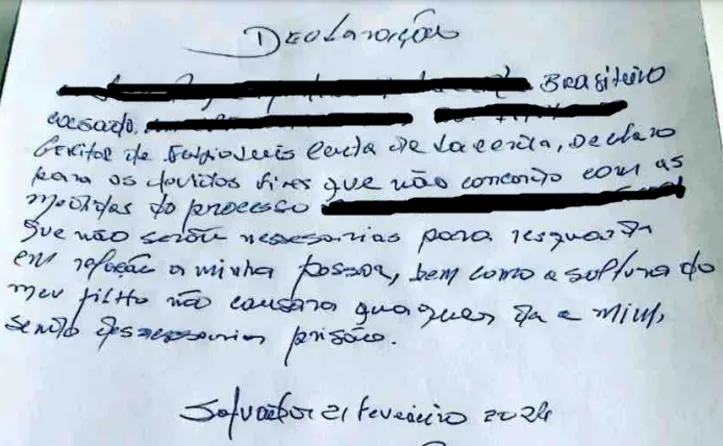 Declaração
Brasileiro
casado,
Genitor de Luis Costa de Lacerda, Declaro
para os devidos fins que não concordo com as
medidas do processo
que não serão nessesarias para resguarda
em relação a minha pessoa, bem como a soltura do
meu filho não causara quaquer a mim,
sendo desnessesaria prisão.
Salvador 21 fevereiro 2024